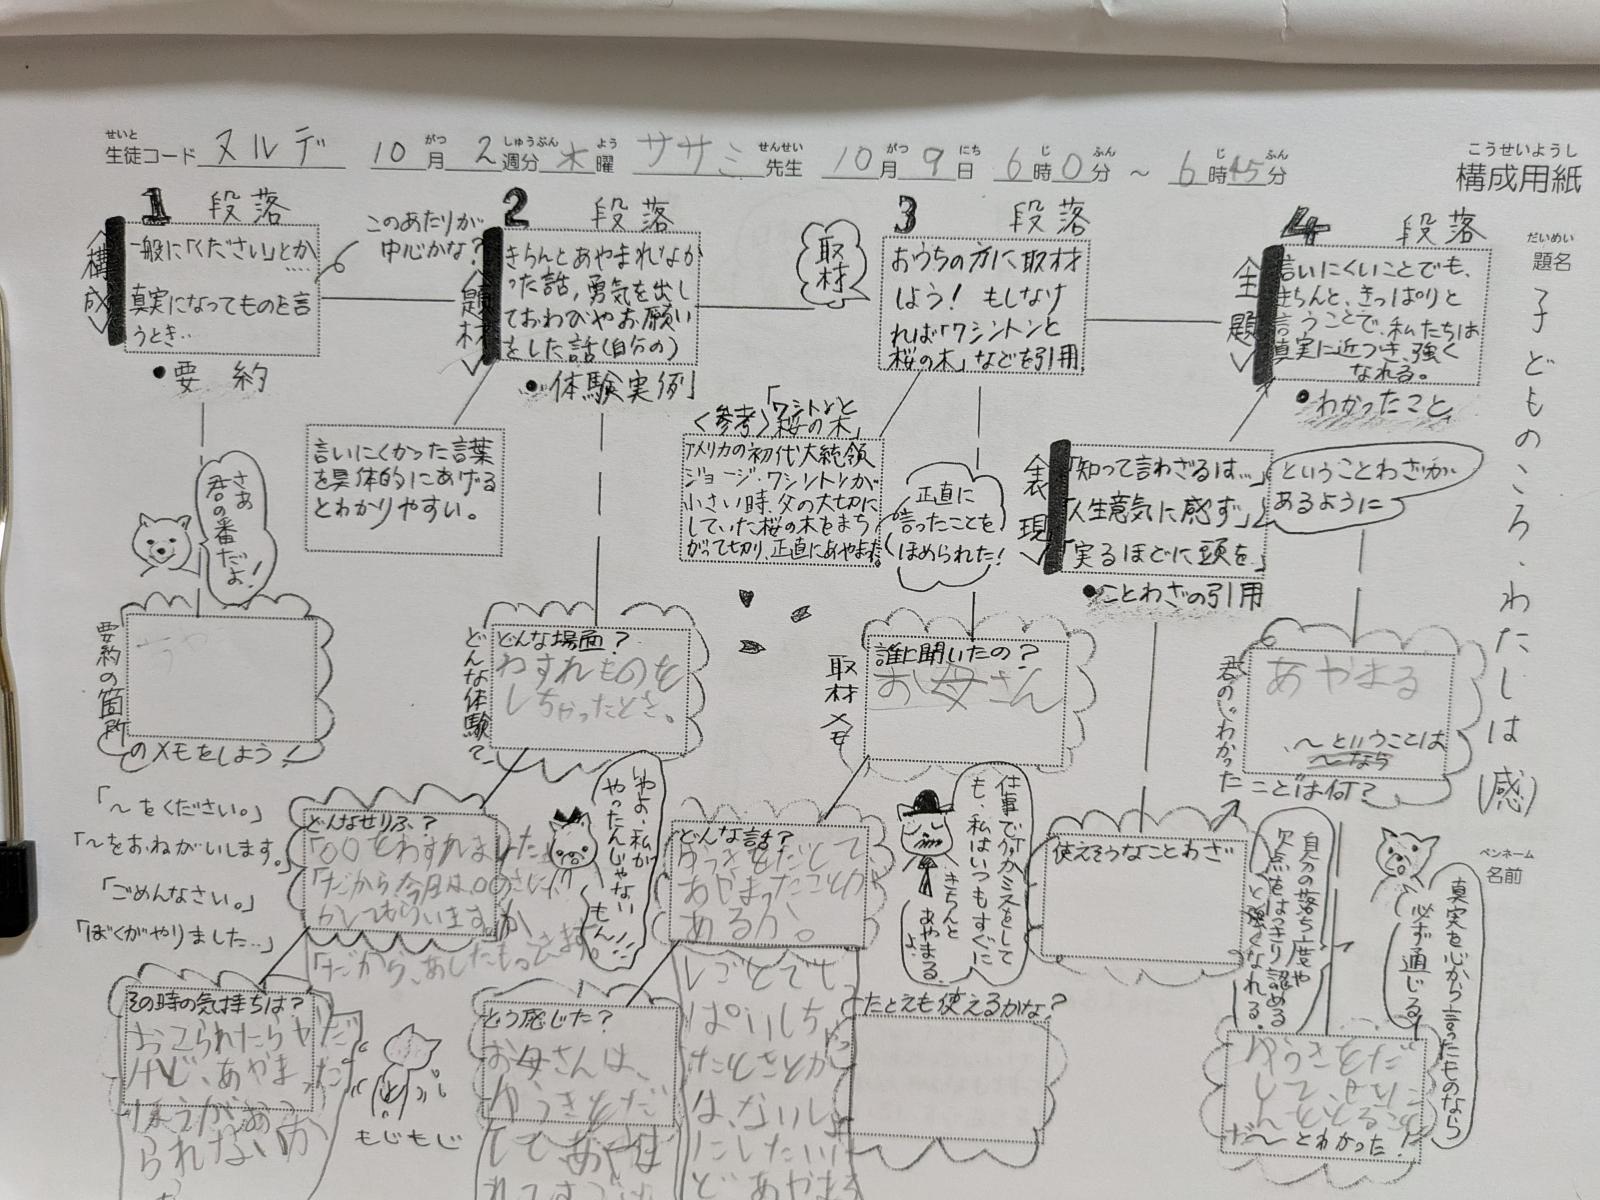 せいと
生徒コード ヌルデ 10月 2週分 木曜 ササミ 先生 10月9日 6時0分 ～ 6時45分
がつ しゅうぶん よう せんせい がつ にち じ ふん じ ふん
こうせいようし
構成用紙
だいめい
題名
子どものころ、わたしは(感)
ペンネーム
名前
1 段落
＜構成＞
一般に「ください」とか
....
真実になってものを言
うとき..
・要約
このあたりが
中心かな？
2 段落
＜題材＞
きちんとあやまれなか
った話，勇気を出し
ておわびやお願い
をした話(自分の)
・体験実例
言いにくかった言葉
を具体的にあげる
とわかりやすい。
取材
3 段落
おうちの方に取材
しよう！ もしなけ
れば「ワシントンと
桜の木」などを引用
＜参考＞「ワシントンと
桜の木」
アメリカの初代大統領
ジョージ・ワシントンが
小さい時、父の大切に
していた桜の木をまち
がって切り、正直にあやまった。
正直に
言ったことを
ほめられた！
4 段落
＜主題＞
言いにくいことでも、
きちんと、きっぱりと
言うことで、私たちは
真実に近づき、強く
なれる。
・わかったこと
＜表現＞
「知って言わざるは…」
「人生意気に感ず」
「実るほどに頭を」
・ことわざの引用
ということわざが
あるように
さあ
君の番だよ！
要約の箇所
のメモをしよう！
「～をください。」
「～をおねがいします。」
「ごめんなさい。」
「ぼくがやりました…」
どんな体験？
どんな場面？
わすれものを
しちゃったとき。
どんなせりふ？
「〇〇をわすれました」
「だから今日は、〇〇さんに
かしてもらいます。」か
「だから、あしたもってきます。」
やよ、私が
やったんじゃない
もん!!
その時の気持ちは？
おこられたらヤだ
けど、あやまった
ほうがおこ
られないか
もじもじ
取材メモ
誰に聞いたの？
お母さん
どんな話？
ゆうきをだして
あやまったことが
あるか。
しごとでしっ
ぱいしちゃっ
たときとか
は、ないしょ
にしたいけ
どあやまる
仕事でミスをして
も、私はいつもすぐに
きちんと
あやまる
よ
どう感じた？
お母さんは、
ゆうきをだ
してあやま
使えそうなことわざ
たとえも使えるかな？
君の"わかった
こと"は何？
あやまる
、～ということは
～なら
自分の落ち度や
欠点をはっきり認める
と強くなれる。
真実を心から言ったものなら
必ず通じる！
ゆうきをだ
して、
だ～とわかった！